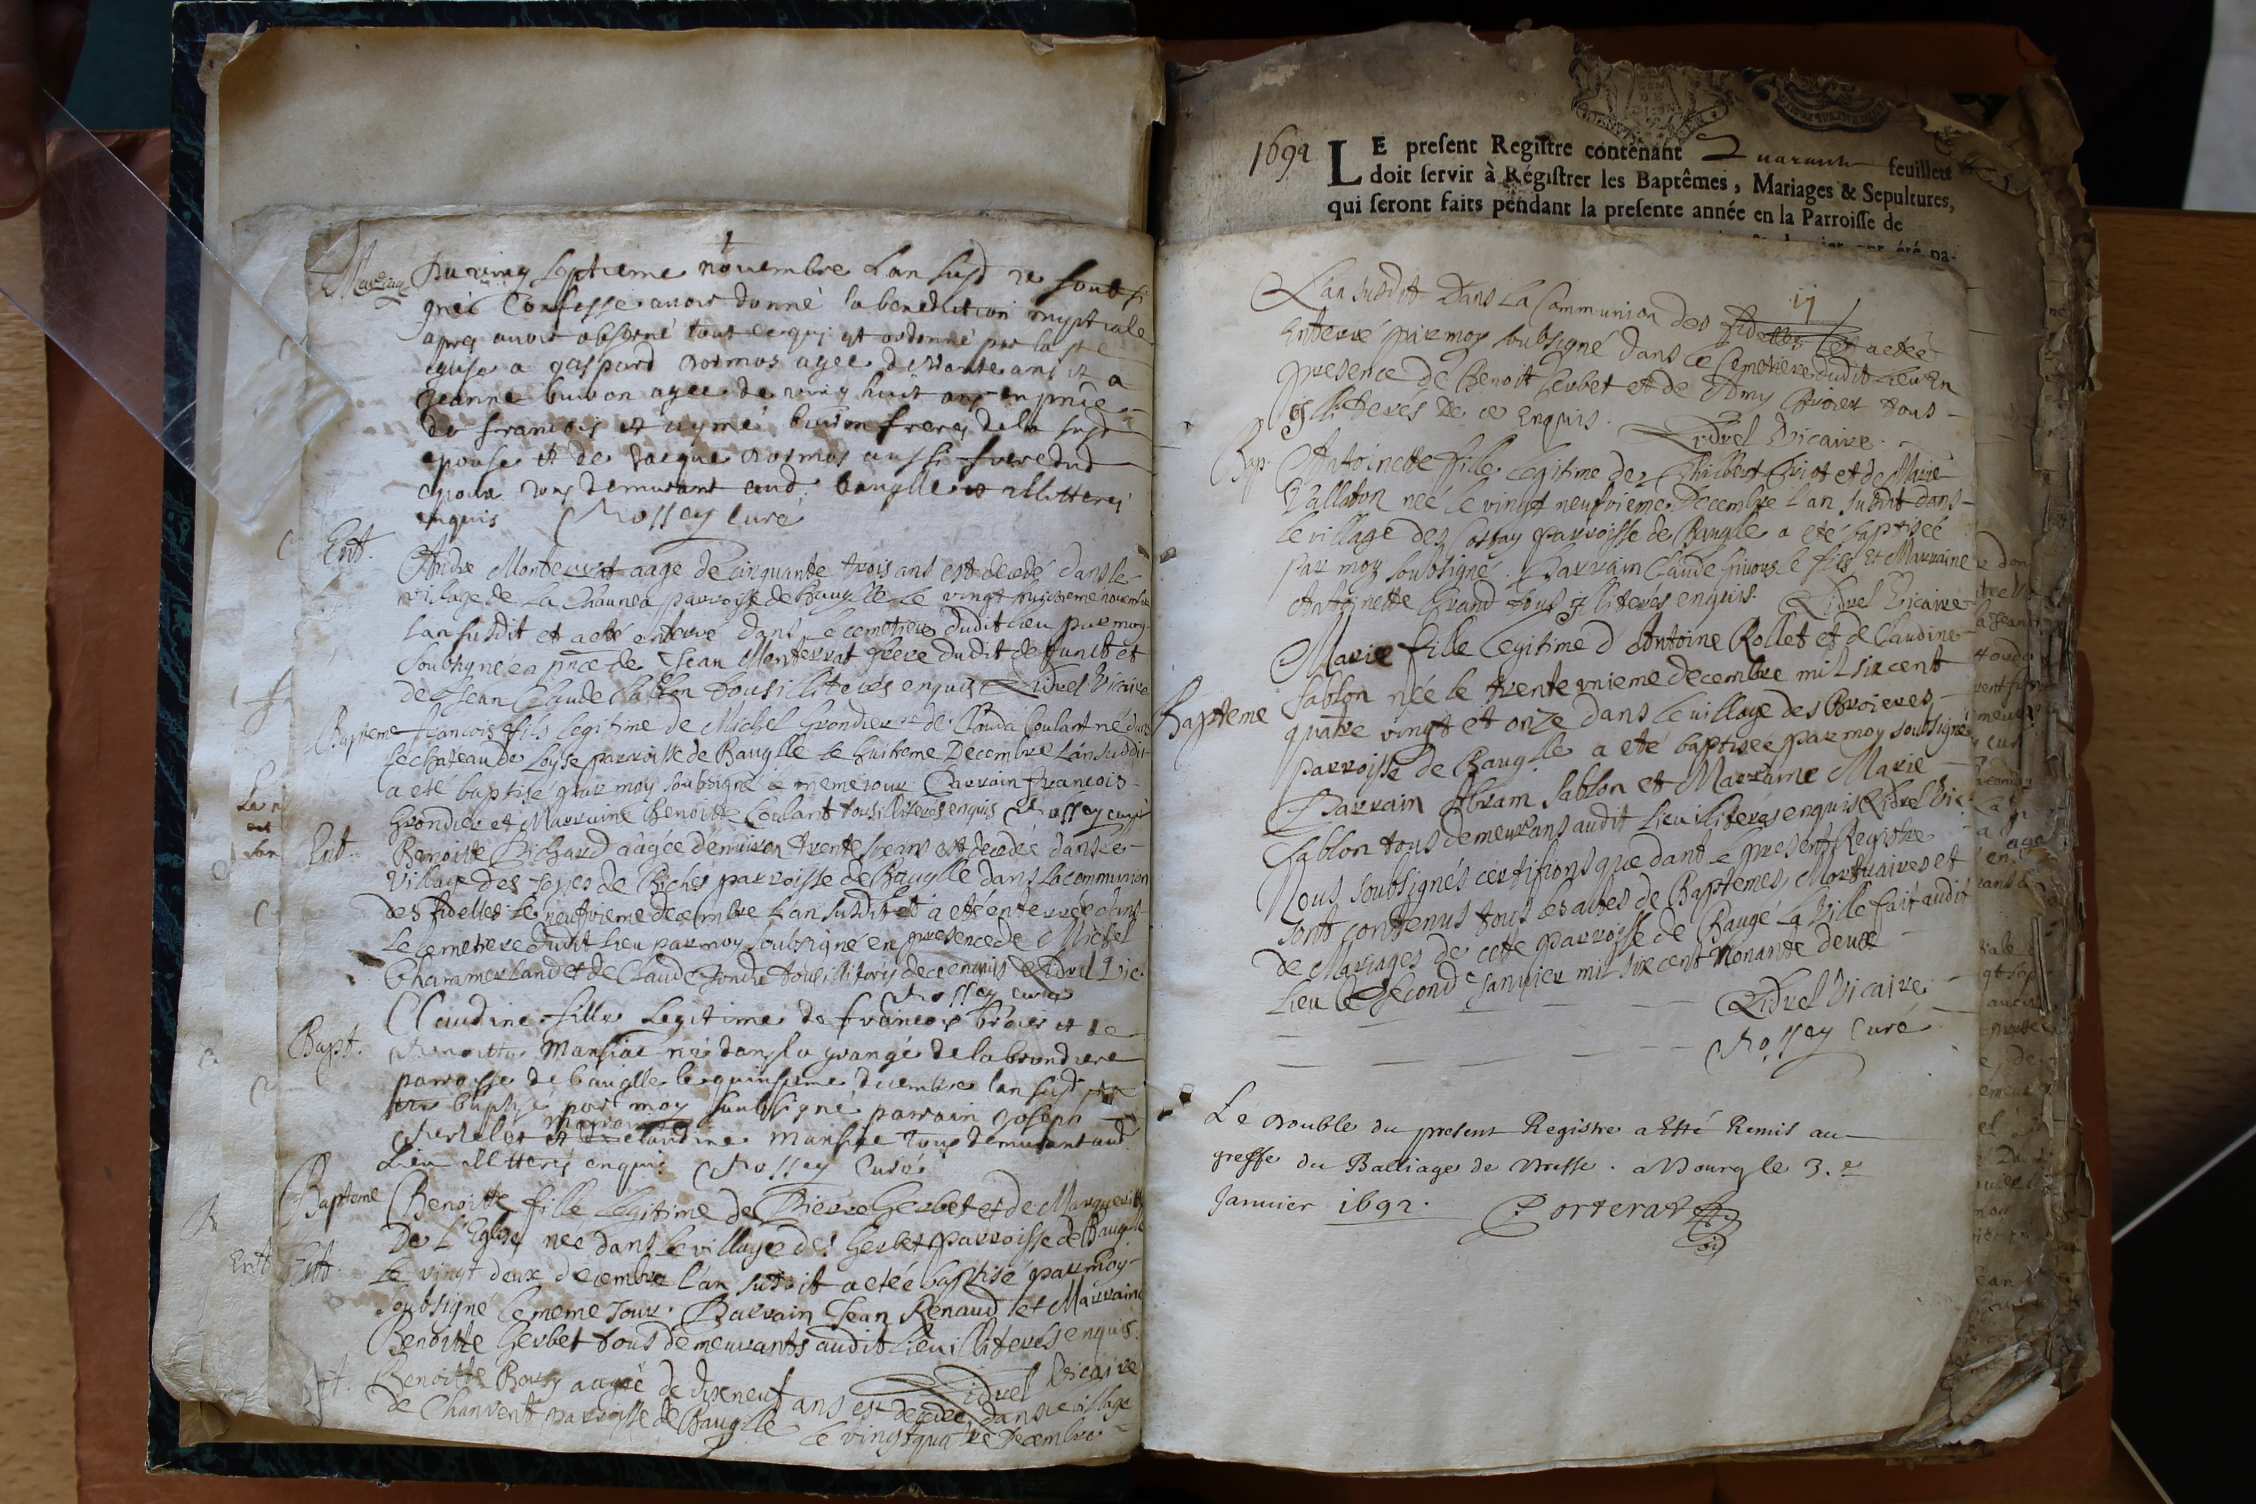 Mariage
Du vingt septieme novembre l'an susd ie soubsi
gné Confesse avoir donné la benediction nuptiale
apres avoir observé tout ce qui est ordonné par la ste
eglise a gaspard rosmos agee de trante ans et a
jeanne buiron agee de vingt huit ans en pnce
de francois et aymé buiron freres de la susd
epouse et de Jacque rosmos aussi frere dud
epoux tous demurant aud. bauglle et illitterés
enquis Rossey curé
Ent.
André Monterrat aagé de cinquante trois ans est decedé dans le
village de La Chaunea parroisse de Baugllé le vingt huictieme novembre
l'an susdit et a eté enterré dans le cemetiere dudit lieu par moy
soubsigné en pnce de Jean Monterrat frere dudit defunct et
de Jean Claude Sablon tous illiterés enquis Lidrel Vicaire
Bapteme francois fils legitime de Michel Grondier et de Clauda Coulant né dans
le chateau de Loyse parroisse de Baugllé le huitieme Decembre l'an susdit
a eté baptisé par moy soubsigné le meme jour Parrain francois
Grondier et Marraine Benoitte Coulant tous illiterés enquis Rossey curé
Ent. Benoitte Pichard aagée d'environ trente six ans est decedée dans le
village des fosses de Biches parroisse de Baugllé dans la communion
des fidelles le neufvieme decembre l'an susdit et a eté enterrée dans
le cemetiere dudit lieu par moy soubsigné en presence de Michel
Chamerland et de Claude Fondu tous illiterés de ce enquis Lidrel Vic.
Rossey curé
Bapt.
Claudine fille legitime de francois broier et de
Benoitte Mansiat né dans la grange de la brondiere
parroisse de bauglle le quinsieme decembre l'an susd
baptisé par moy soubsigné parrain Joseph
Marraine
et claudine mansiat tous demurant aud
Lieu illitteres enquis Rossey Curé
Bapteme Benoitte fille legitime de Pierre Gerbet et de Marguerite
De l'Eglise née dans le village des Gerbet parroisse de Bauglle
Ent Ent. le vingt deux decembre l'an susdit a eteé baptisé par moy
soubsigné le meme jour. Parrain Jean Renaud et Marraine
Benoitte Gerbet tous demeurants audit lieu illiterés enquis.
Lidrel Vicaire
Benoitte Bouvy aagée de dixneuf ans est decedée dans le village
de Chanvent parroisse de Baugllé le vingt quatre Decembre
1692 LE present Registre contenant Quarante feuillets
doit servir à Régistrer les Baptêmes, Mariages & Sepultures,
qui seront faits pendant la presente année en la Parroisse de
ij
L'an susdit dans la Communion des fidelles et a eteé
Enterré par moy soubsigné dans le Cemetiere dudit Lieu En
presence de Benoit Gerbet et de Aimy Broier tous
illiterés de ce Enquis. Lidrel Vicaire.
Bap. Antoinette fille legitime de Philibert Criot et de Marie
Vallaton neé le vingt neufvieme Decembre l'an susdit dans
le village de Corsay parroisse de Baugllé a eté baptiseé
par moy soubsigné. Parrain Claude le fils Et Marraine
Antoinette Grand tous illiterés enquis. Lidrel Vicaire
Marie fille legitime d'Antoine Rollet et de Claudine
Bapteme Sablon neé le trente unieme decembre mil six cent
quatre vingt et onze dans le village des Broieres
parroisse de Baugllé a eté baptiseé par moy soubsigné
Parrain Abram Sablon et Marraine Marie
Sablon tous demeurans audit Lieu iliteres enquis Lidrel Vic.
Nous soubsignés certifions que dans le present Registre
sont contenus tous les actes de Baptemes, Mortuaires et
de Mariages de cette parroisse de Baugé la Ville fait audit
lieu le second Janvier mil six cent Nonante deux
Lidrel Vicaire.
Rossey Curé
Le double du present Registre a Etté Remis au
greffe du Balliage de Bresse. a Bourg le 3.e
Janvier 1692. Porterat